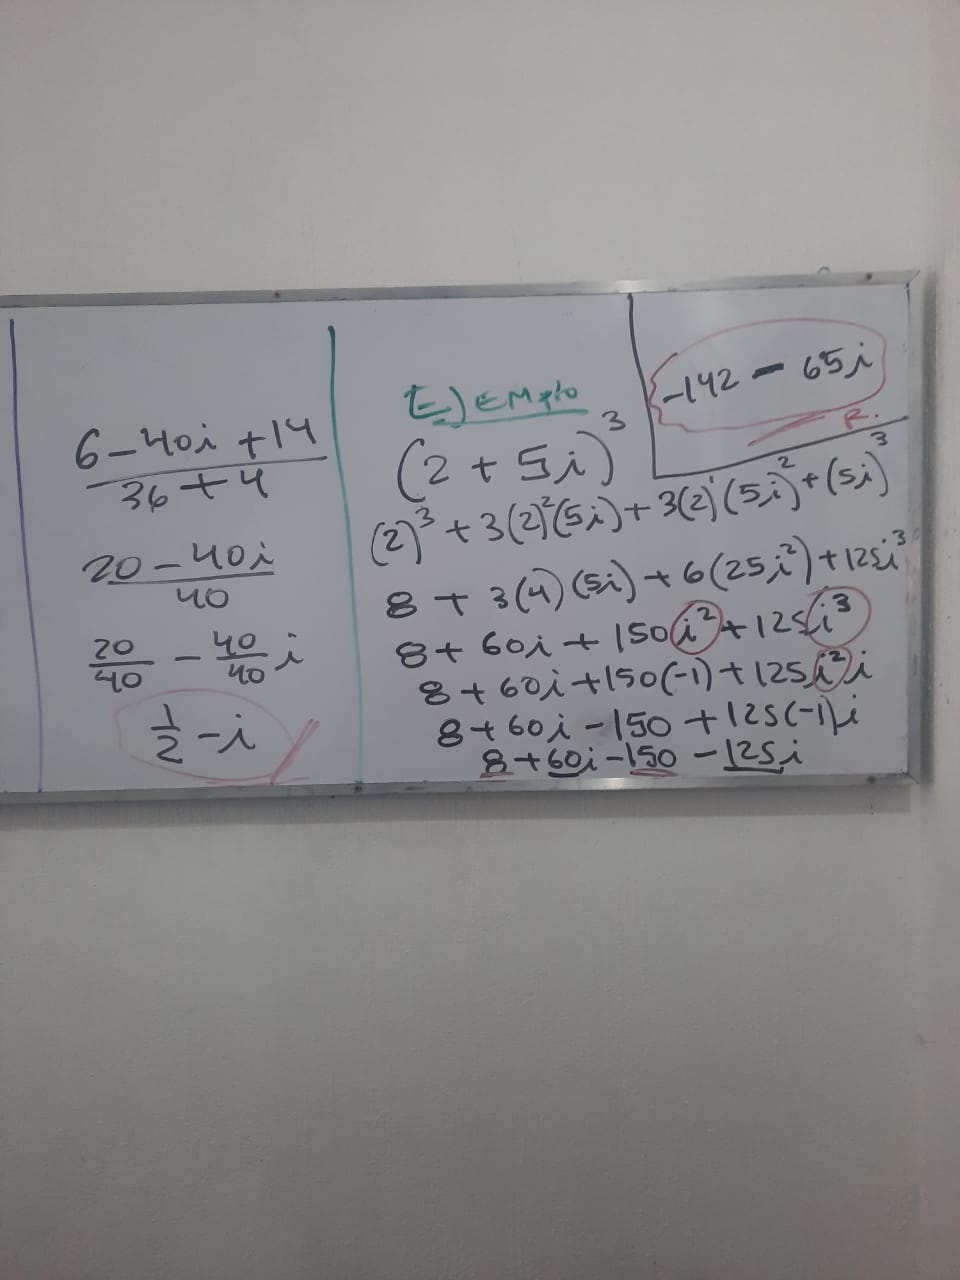 6-40i+14
36+4
20-40i
40
20/40 - 40/40 i
1/2 - i
Ejemplo
(2+5i)³
(2)³+3(2)²(5i)+3(2)¹(5i)²+(5i)³
8+3(4)(5i)+6(25i²)+125i³
8+60i+150i²+125i³
8+60i+150(-1)+125i²i
8+60i-150+125(-1)i
8+60i-150-125i
-142-65i
R.